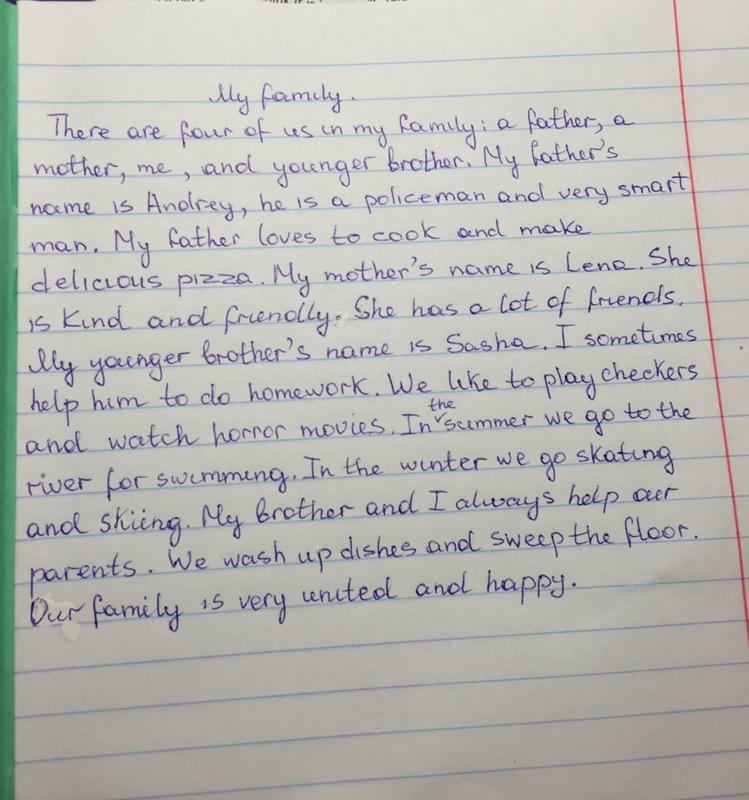 My family.
There are four of us in my family: a father, a
mother, me, and younger brother. My father's
name is Andrey, he is a policeman and very smart
man. My father loves to cook and make
delicious pizza. My mother's name is Lena. She
is kind and friendly. She has a lot of friends.
My younger brother's name is Sasha. I sometimes
help him to do homework. We like to play checkers
and watch horror movies. In the summer we go to the
river for swimming. In the winter we go skating
and skiing. My brother and I always help our
parents. We wash up dishes and sweep the floor.
Our family is very united and happy.